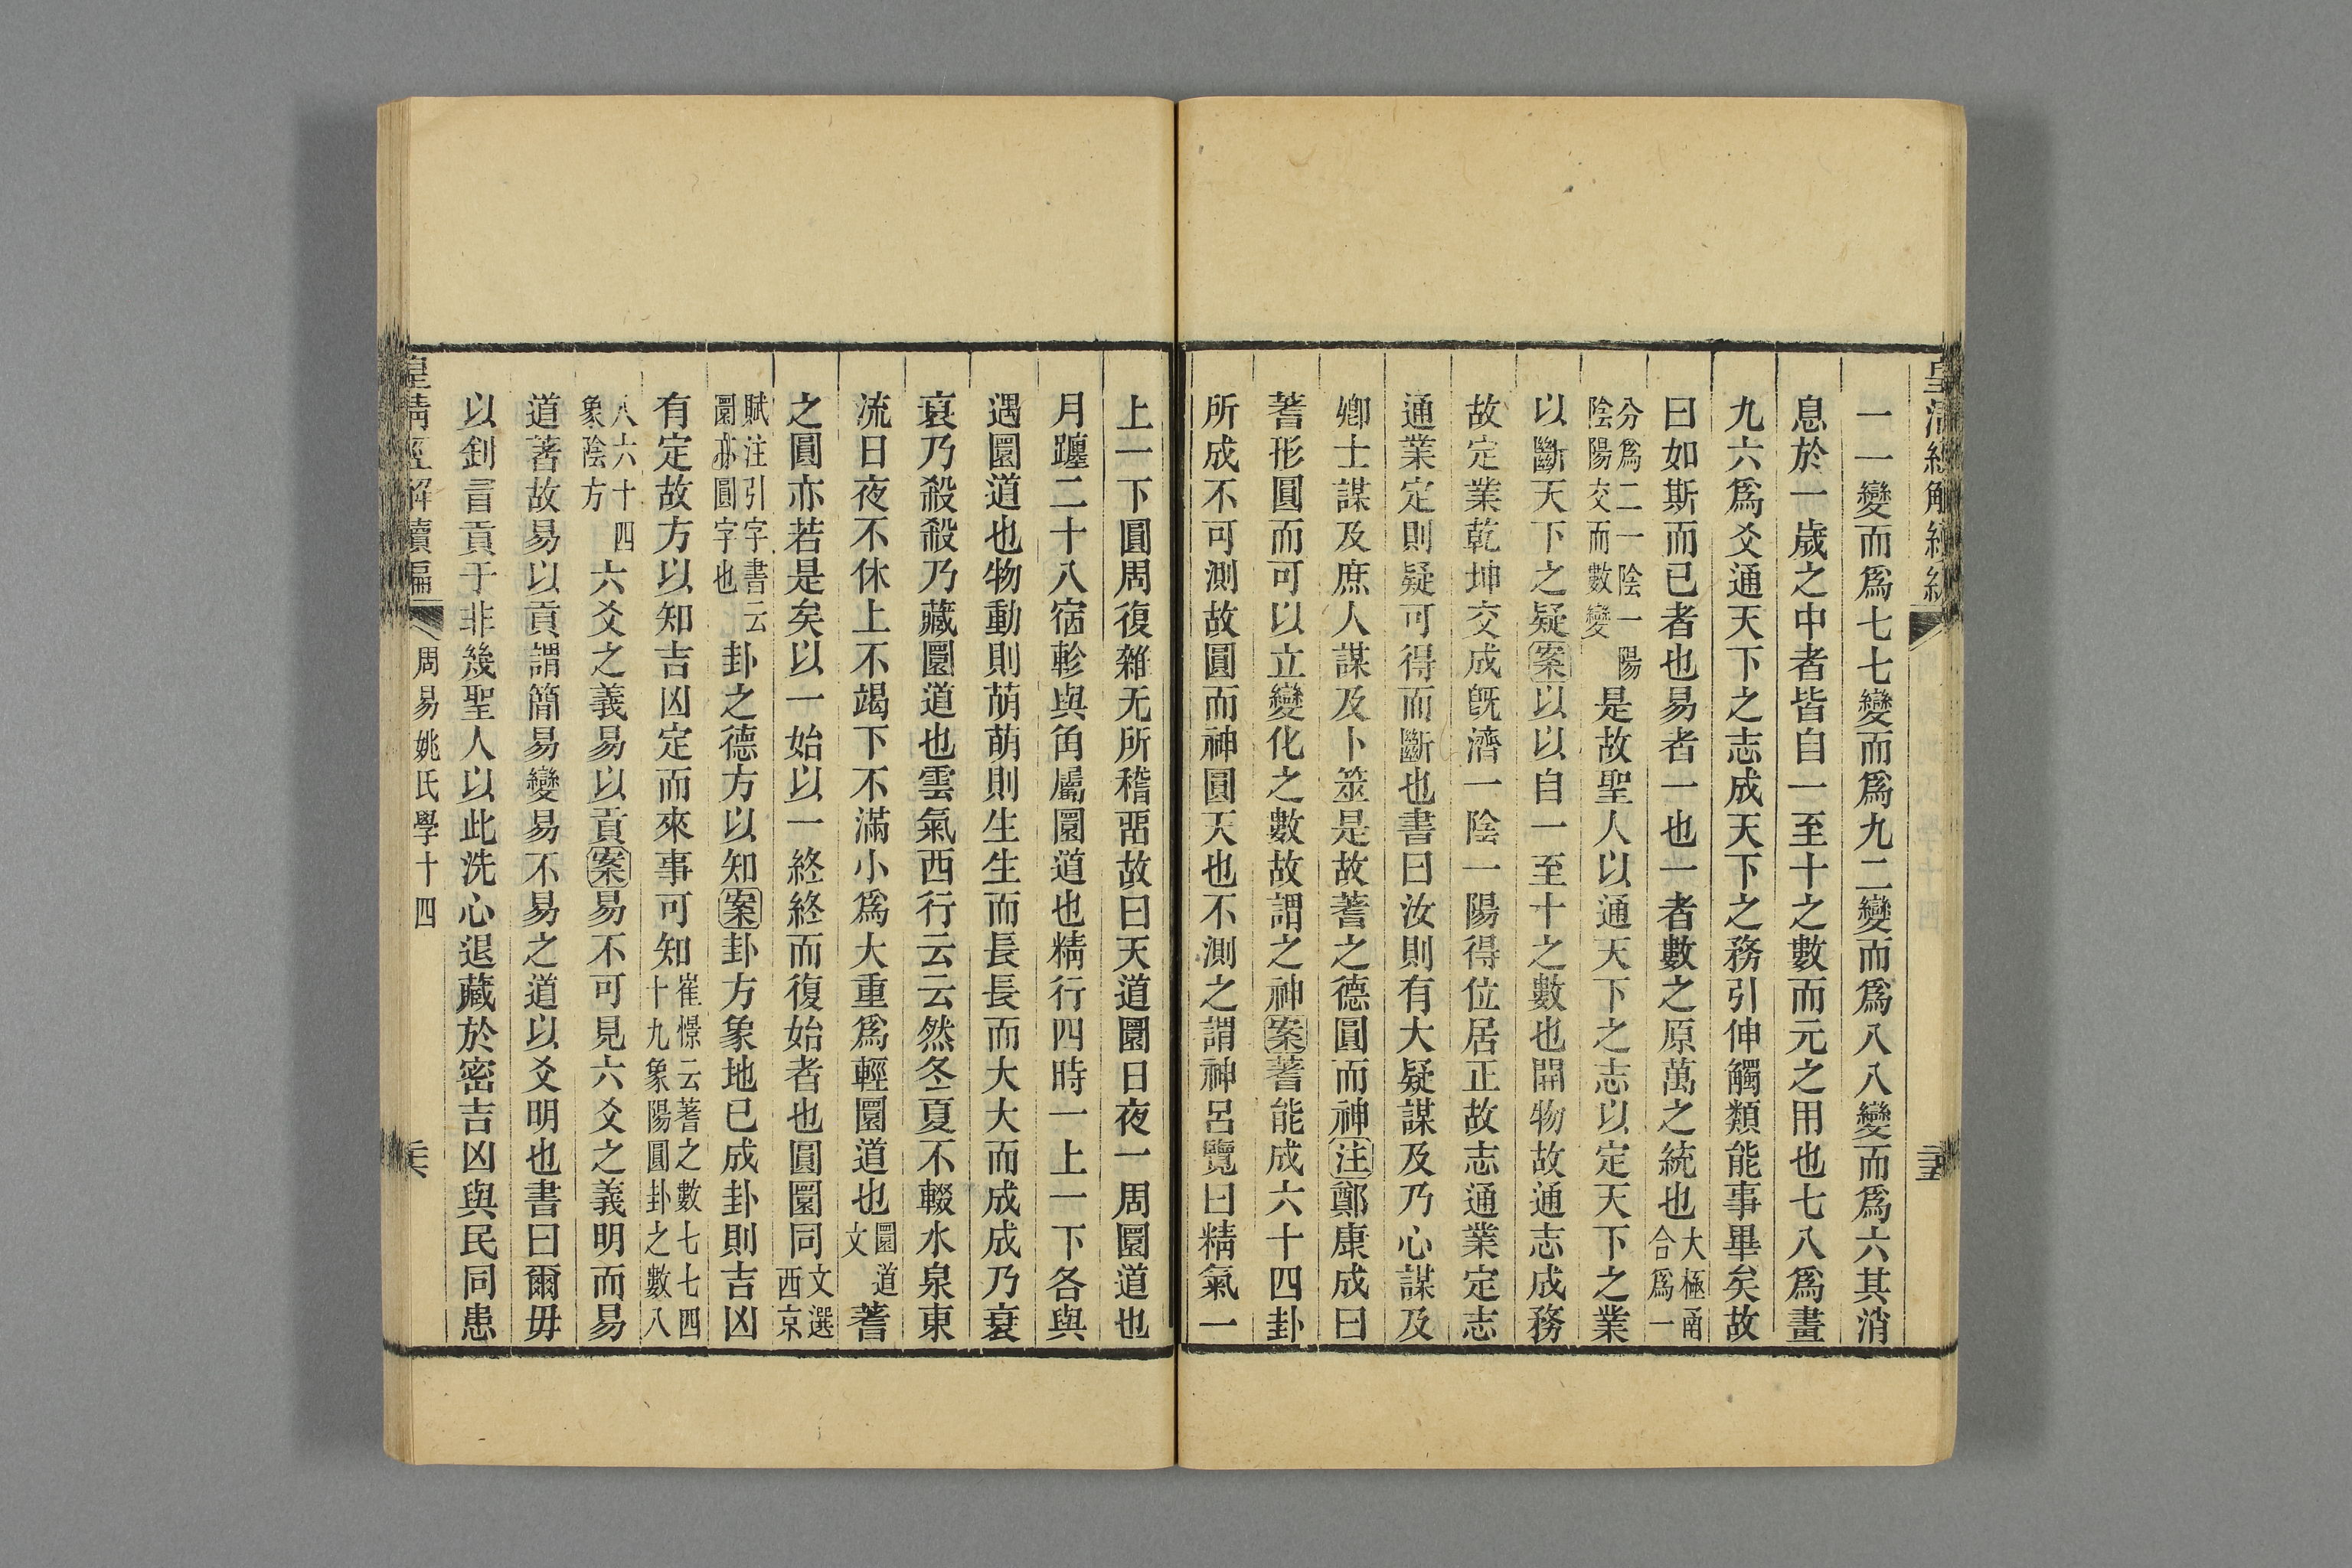 一一變而爲七七變而爲九二變而爲八八變而爲六其消
息於一歲之中者皆自一至十之數而元之用也七八爲畫
九六爲爻通天下之志成天下之務引伸觸類能事畢矣故
曰如斯而已者也易者一也一者數之原萬之統也大極函合爲一
分爲二一陰一陽陰陽交而數變是故聖人以通天下之志以定天下之業
以斷天下之疑案以以自一至十之數也開物故通志成務
故定業乾坤交成旣濟一陰一陽得位居正故志通業定志
通業定則疑可得而斷也書曰汝則有大疑謀及乃心謀及
卿士謀及庶人謀及卜筮是故蓍之德圓而神注鄭康成曰
蓍形圓而可以立變化之數故謂之神案蓍能成六十四卦
所成不可測故圓而神圓天也不測之謂神呂覽曰精氣一
上一下圓周復雜无所稽畱故曰天道圜日夜一周圜道也
月躔二十八宿軫與角屬圜道也精行四時一上一下各與
遇圜道也物動則萌萌則生生而長長而大大而成成乃衰
衰乃殺殺乃藏圜道也雲氣西行云云然冬夏不輟水泉東
流日夜不休上不竭下不滿小爲大重爲輕圜道也圜道文蓍
之圓亦若是矣以一始以一終終而復始者也圓圜同文選西京
賦注引字書云圜亦圓字也卦之德方以知案卦方象地已成卦則吉凶
有定故方以知吉凶定而來事可知崔憬云蓍之數七七四十九象陽圓卦之數八
八六十四象陰方六爻之義易以貢案易不可見六爻之義明而易
道著故易以貢謂簡易變易不易之道以爻明也書曰爾毋
以釗冒貢于非幾聖人以此洗心退藏於密吉凶與民同患
皇淸經解續編
周易姚氏學十四